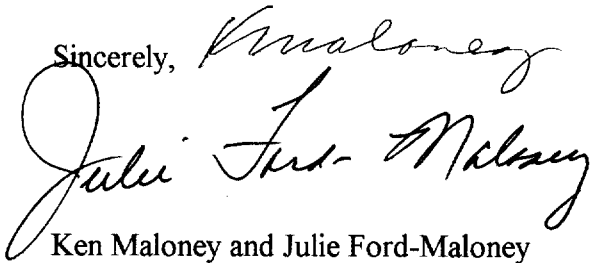 Sincerely, KMaloney
Julie Ford-Maloney
Ken Maloney and Julie Ford-Maloney